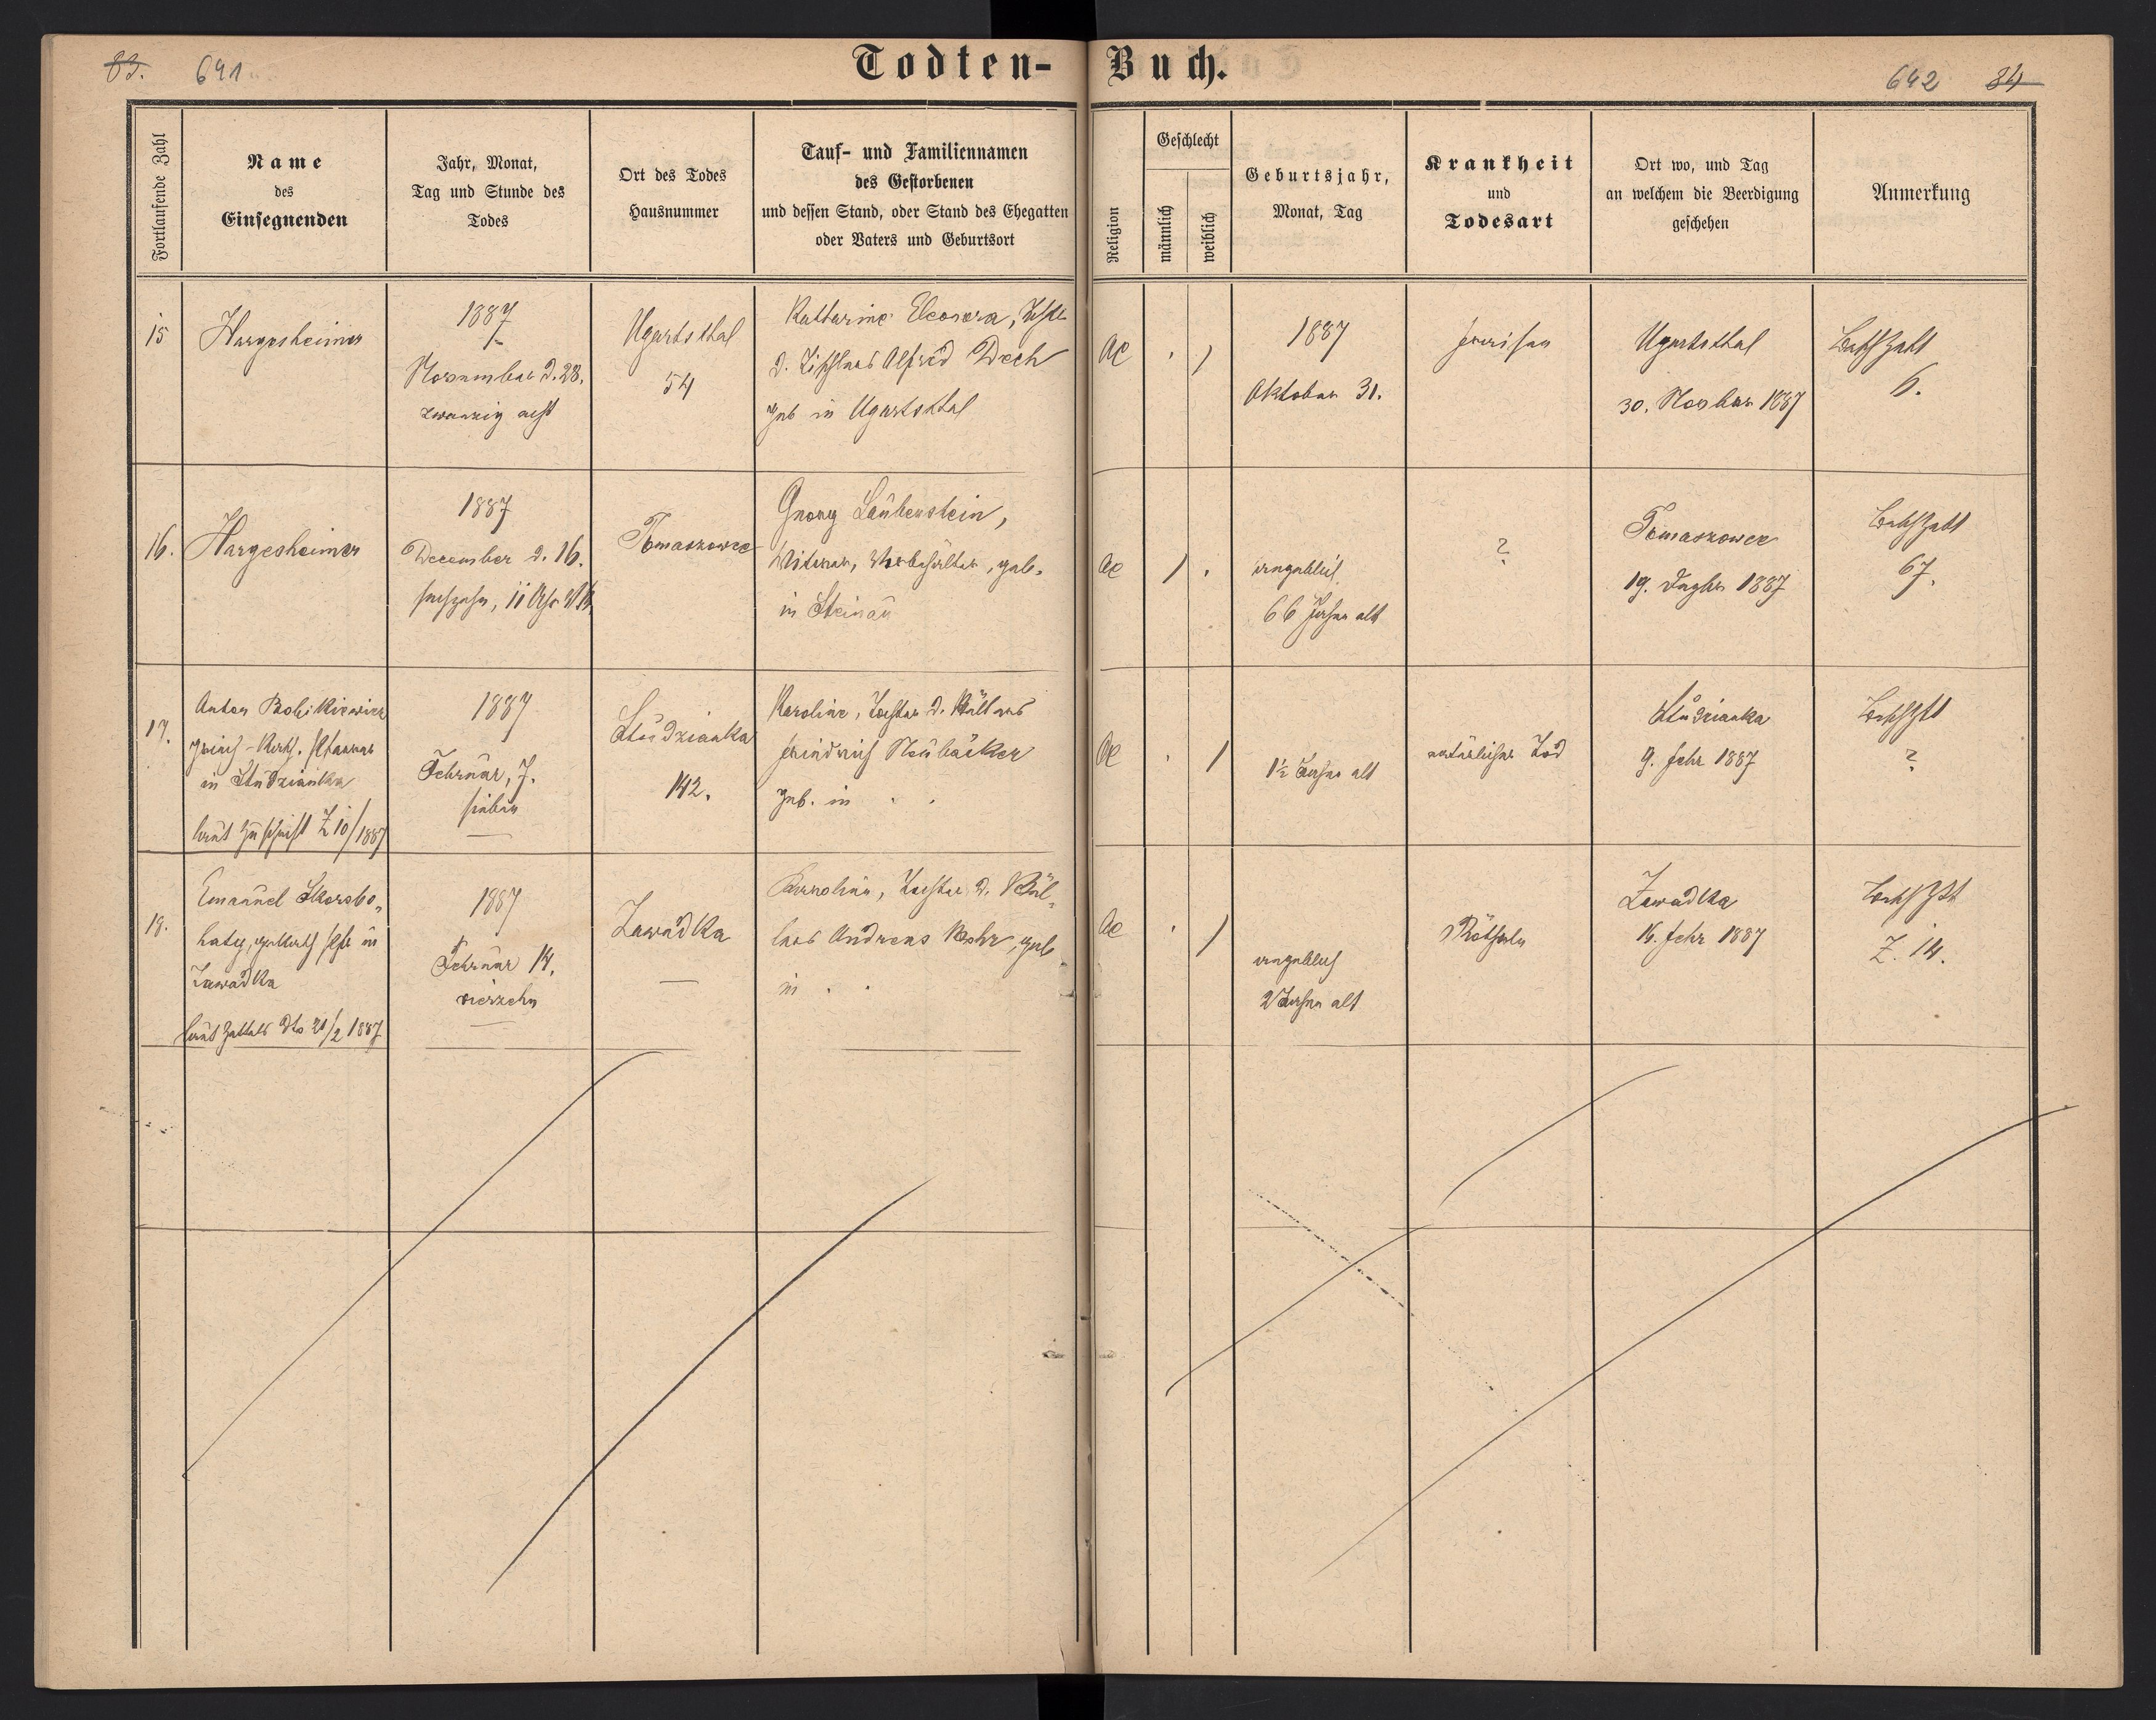 83. 641
Todten-Buch.
642 84
Fortlaufende Zahl
Name
des
Einsegnenden
Jahr, Monat,
Tag und Stunde des
Todes
Ort des Todes
Hausnummer
Tauf- und Familiennamen
des Gestorbenen
und dessen Stand, oder Stand des Ehegatten
oder Vaters und Geburtsort
Religion
Geschlecht
männlich
weiblich
Geburtsjahr,
Monat, Tag
Krankheit
und
Todesart
Ort wo, und Tag
an welchem die Beerdigung
geschehen
Anmerkung
15
Hargesheimer
1887
November d. 28.
zwanzig acht
Ugartsthal
54
Katharine Eleonora,
d. Tischlers Alfred Dech
geb in Ugartsthal
AC
1887
Oktober 31.
Fraisen
Ugartsthal
30. Novber 1887
6.
16.
Hargesheimer
1887
December d. 16.
sechzehn, 11 Uhr
Tomaszowce
Georg Laubenstein,
Witwer, geb.
in Steinau
AC
angeblich
66 Jahre alt
?
Tomaszowce
19. Dezbr 1887
67.
17.
Anton Bobikiewicz
griech-kath. Pfarrer
in Studzianka
laut Zuschrift Z 10/1887
1887
Februar, 7.
sieben
Studzianka
142.
Karoline, Tochter d.
Friedrich Neubäcker
geb. in . .
AC
1½ Jahre alt
natürlicher Tod
Studzianka
9. Febr 1887
?
18.
Emanuel Skorobo-
haty, in
Zawadka
laut dto 21/2 1887
1887
Februar 14.
vierzehn
Zawadka
Karolina, Tochter d.
Andreas geb
in . .
AC
angeblich
2 Jahre alt
Rötheln
Zawadka
16. Febr 1887
Z. 14.